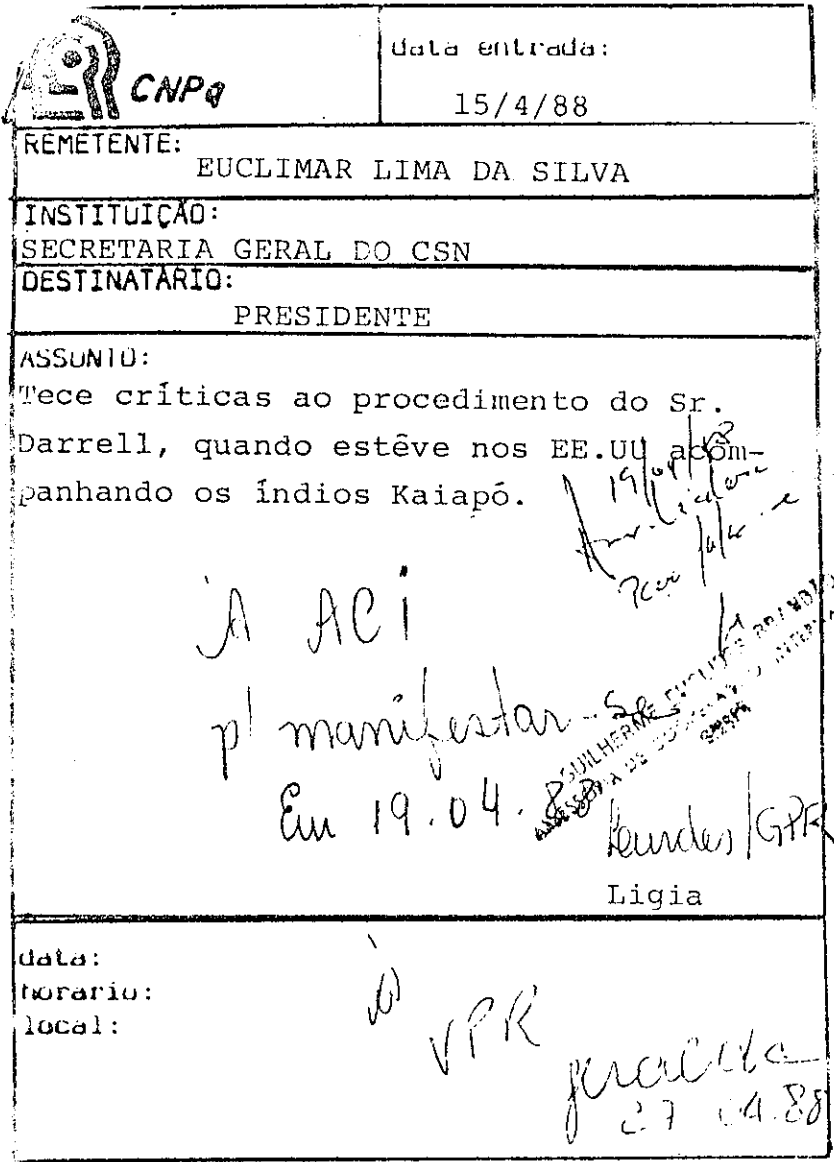 CNPq
data entrada:
15/4/88
REMETENTE:
EUCLIMAR LIMA DA SILVA
INSTITUIÇÃO:
SECRETARIA GERAL DO CSN
DESTINATÁRIO:
PRESIDENTE
ASSUNTO:
Tece críticas ao procedimento do Sr.
Darrell, quando estêve nos EE.UU acom-
panhando os índios Kaiapó.
19/04/88
À ACI
p/ manifestar-se
GUILHERME EUCLIDES BRANDÃO
ASSESSORIA DE COOPERAÇÃO
Em 19.04.88
Lourdes/GPR
Ligia
data:
horario:
local:
À
VPR
27.04.88